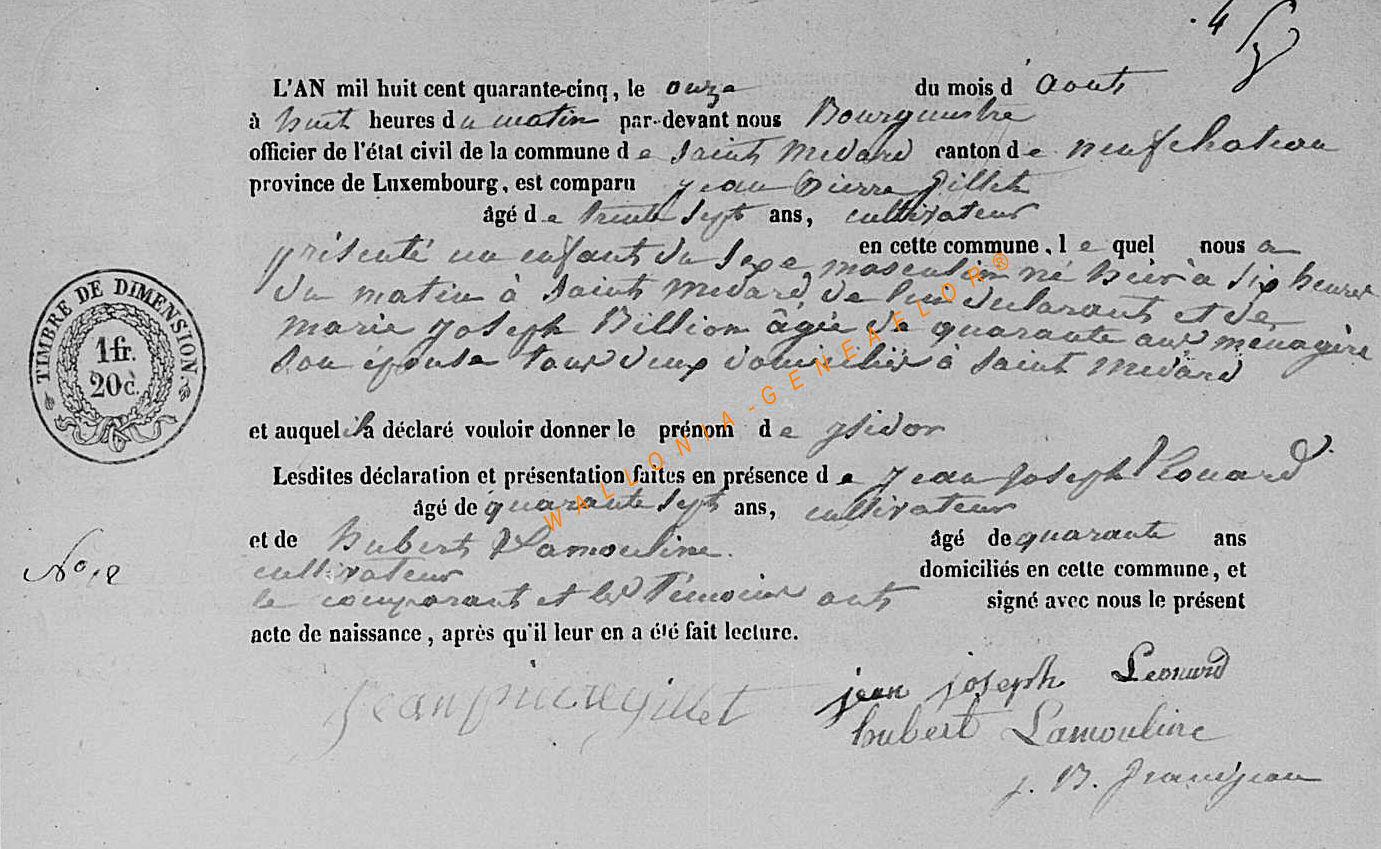 .4
L'AN mil huit cent quarante-cinq, le onze du mois d'Aout
à huit heures du matin par-devant nous Bourgmestre
officier de l'état civil de la commune de saint Medard canton de neufchateau
province de Luxembourg, est comparu jean Pierre Gillet
âgé de trente sept ans, cultivateur
en cette commune, lequel nous a
présenté un enfant du sexe masculin né hier à six heures
du matin à saint Medard, de lui declarant et de
marie joseph Billion âgée de quarante ans menagère
son épouse tous deux domiciliés à saint Medard
et auquel il a déclaré vouloir donner le prénom de ysidor
Lesdites déclaration et présentation faites en présence de jean joseph Léonard
âgé de quarante sept ans, cultivateur
et de hubert Lamouline. âgé de quarante ans
cultivateur domiciliés en cette commune, et
le comparant et les témoins ont signé avec nous le présent
acte de naissance, après qu'il leur en a été fait lecture.
jean pierre gillet
jean joseph Leonard
hubert Lamouline
j. B.
TIMBRE DE DIMENSION
1 fr.
20 c.
No 12
WALLONIA-GENEAFLOR®